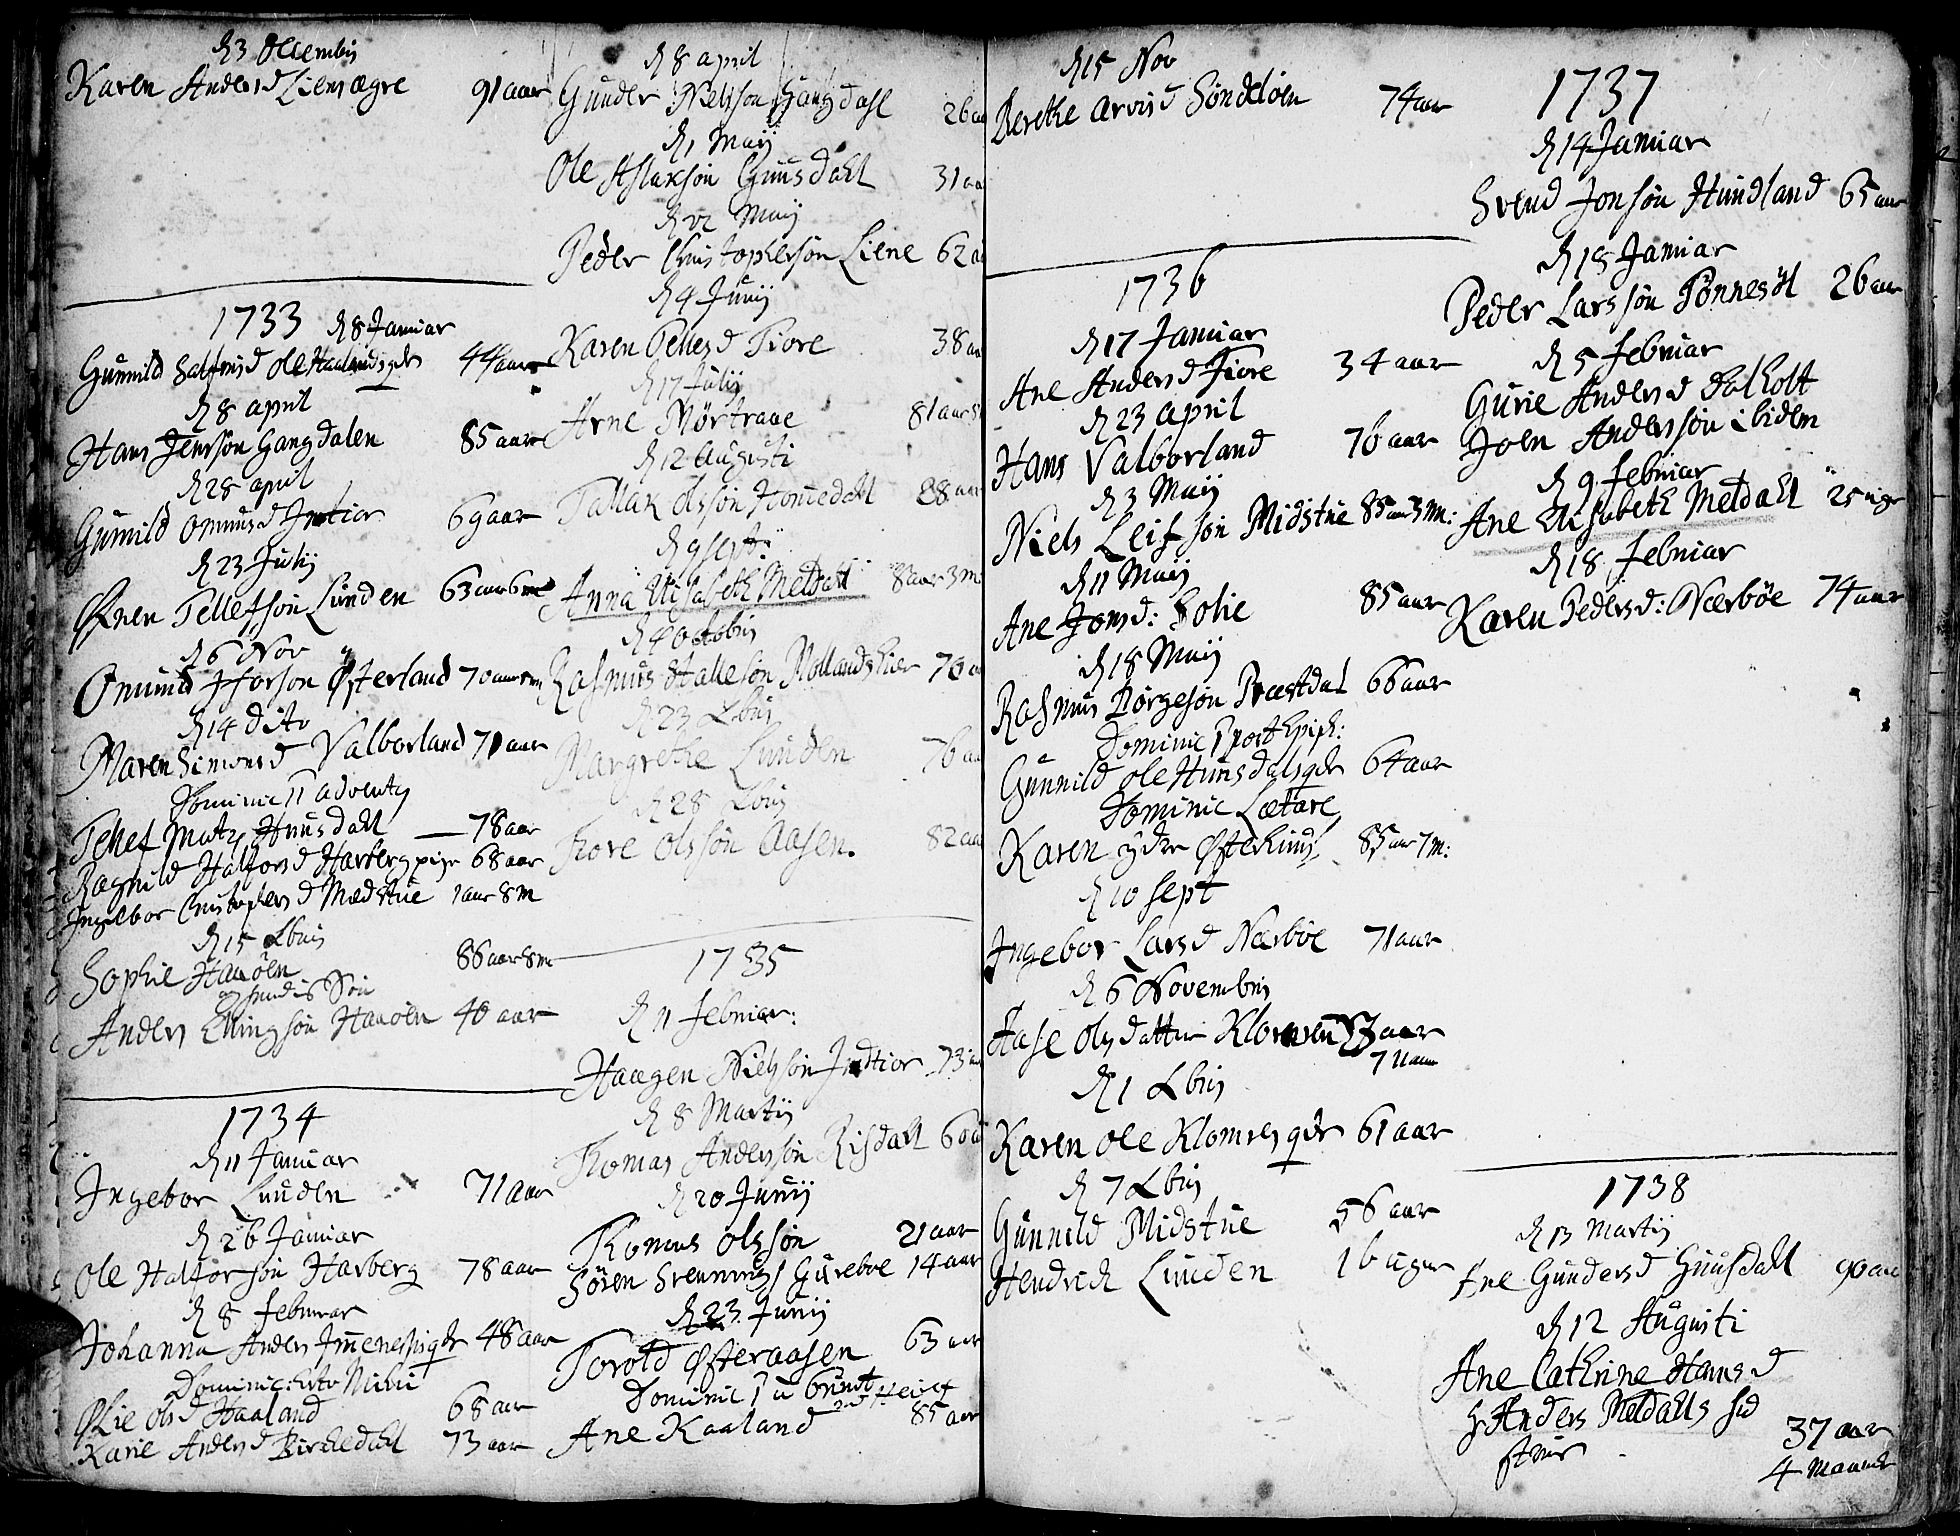 d 3 Decembris
Karen Anders d Liensægre 91 aar
1733 d 8 Januar
Gunnild Ole Haalands qde 44 aar
d 8 april
Hans Jensson Gangdalen 85 aar
d 28 april
Gunnild Omunds d 69 aar
d 23 Julij
Tellefson Lunden 63 aar 6 m
d 6 Nov
Omund Østerland 70 aar
d 14 dito
Maren Simons d Valborland 71 aar
Dominic II adventq
Tellef Hunsdahl — 78 aar
Ragnild Halfors d Harberg pige 68 aar
Ingebor Christophers d Mædstue 1 aar 8 m
d 15 Xbris
Sophie Haaøen 86 aar 8 m
og hendis Søn
Anders Ellingsøn Haaøen 40 aar
1734
d 11 Januar
Ingebor Lunden 71 aar
d 26 Januar
Ole Halforsøn Harberg 78 aar
d 8 Februar
Johanna Anders qde 48 aar
Dominic: Esto Mihi
Ols d Haaland 68 aar
Karie Anders d Birchedahl 73 aar
d 8 april
Gunder Nielsson Gangdahl 26 aa
d 1 Maij
Ole Aslaksøn Guusdahl 31 aa
d 22 Maij
Peder Christophersøn Liene 62 a
d 4 Junij
Karen Peders d Fiore 38 aa
d 17 Julij
Arne Nørtraae 81 aar
d 12 Augusti
Tallak Olssøn Homedahl 88 aar
d 9 Sept:
Anna Elisabeth Meldahl 8 aar 3 m:
d 4 Octobris
Rasmus Hallesøn 70 a
d 23 Xbris
Margrethe Lunden 76 aa
d 28 Xbris
Tore Olssøn Aasen. 82 aa
1735
d 11 Februar:
Haagen Nielssøn 73 aa
d 8 Martij
Thomas Anderssøn Risdahl 60 a
d 20 Junij
Thomas Olssøn 21 aar
Sören Gureboe 14 aar
d 23 Junij
Torold Østeraasen 63 aar
Dominic
Ane Kaaland 85 aar
d 15 Nov
Berethe Arvis d Søndeløen 74 aar
1736
d 17 Januar
Ane Anders d Fiore 34 aar
d 23 april
Hans Valborland 76 aar
d 3 Maij
Niels Leifsøn Midstue 85 aar 3 m:
d 11 Maij
Ane Jons d: Solie 85 aar
d 18 Maij
Rasmus Børgesøn Præstdal 66 aar
Dominic 1 post Epiph:
Gunnild Ole Hunsdals qde 64 aar
Dominic Lætare
Karen 85 aar 7 m:
d 10 Sept
Ingebor Lars d Nærbøe 71 aar
d 6 Novembris
Aase Olsdatter 73 aar
7 Uger
d 1 Xbris
Karen Ole Klomres qde 61 aar
d 7 Xbris
Gunnild Midstue 56 aar
Hendrich Lunden 16 uger
1737
d 14 Januar
Svend Jonsøn Hundland 65 aar
d 18 Januar
Peder Larssøn Tønnesøl 26 aar
d 5 Februar
Gurie Anders d Dalholt
Joen Anderssøn ibidem
d 9 Februar
Ane Elisabeth Meldahl 25 uger
d 18 Februar
Karen Peders d: Nærbøe 74 aar
1738
d 13 Martij
Ane Gunders d Guusdahl 90 aa
d 12 Augusti
Ane Cathrine Hans d
Hr Anders Meldalls
37 aar
4 Maaned